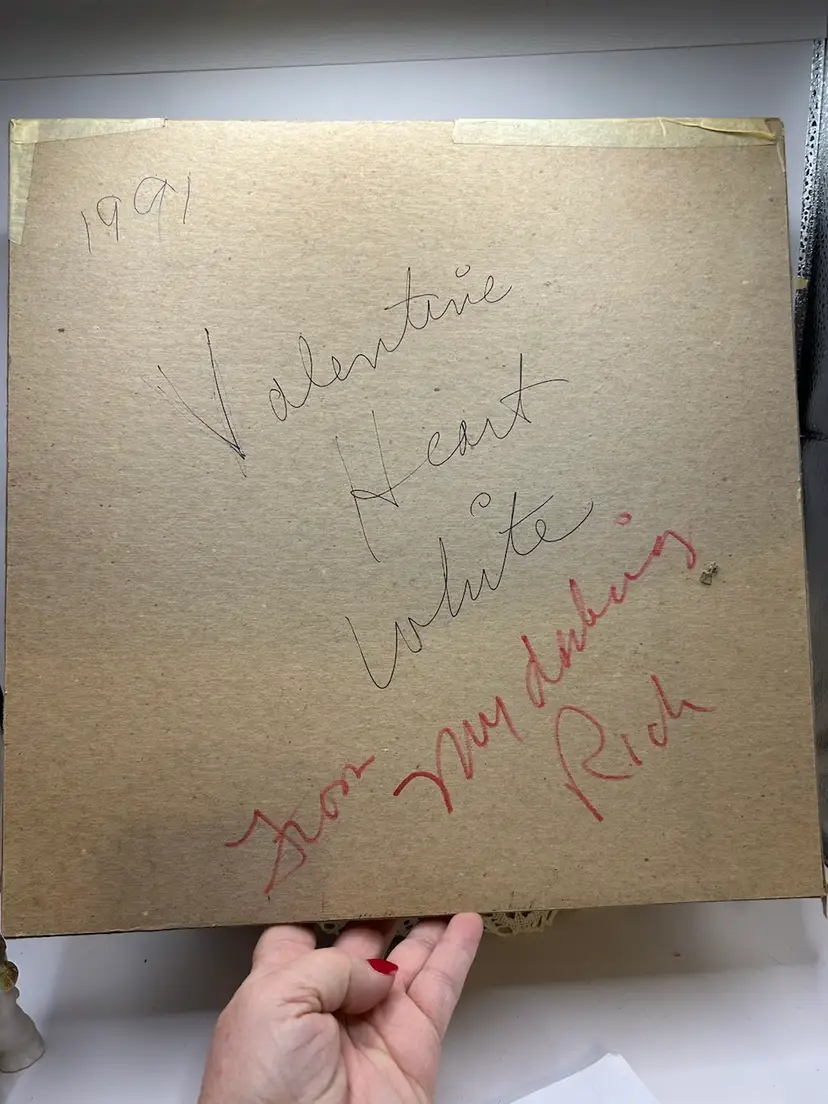 1991
Valentine
Heart
White
From My darling
Rich